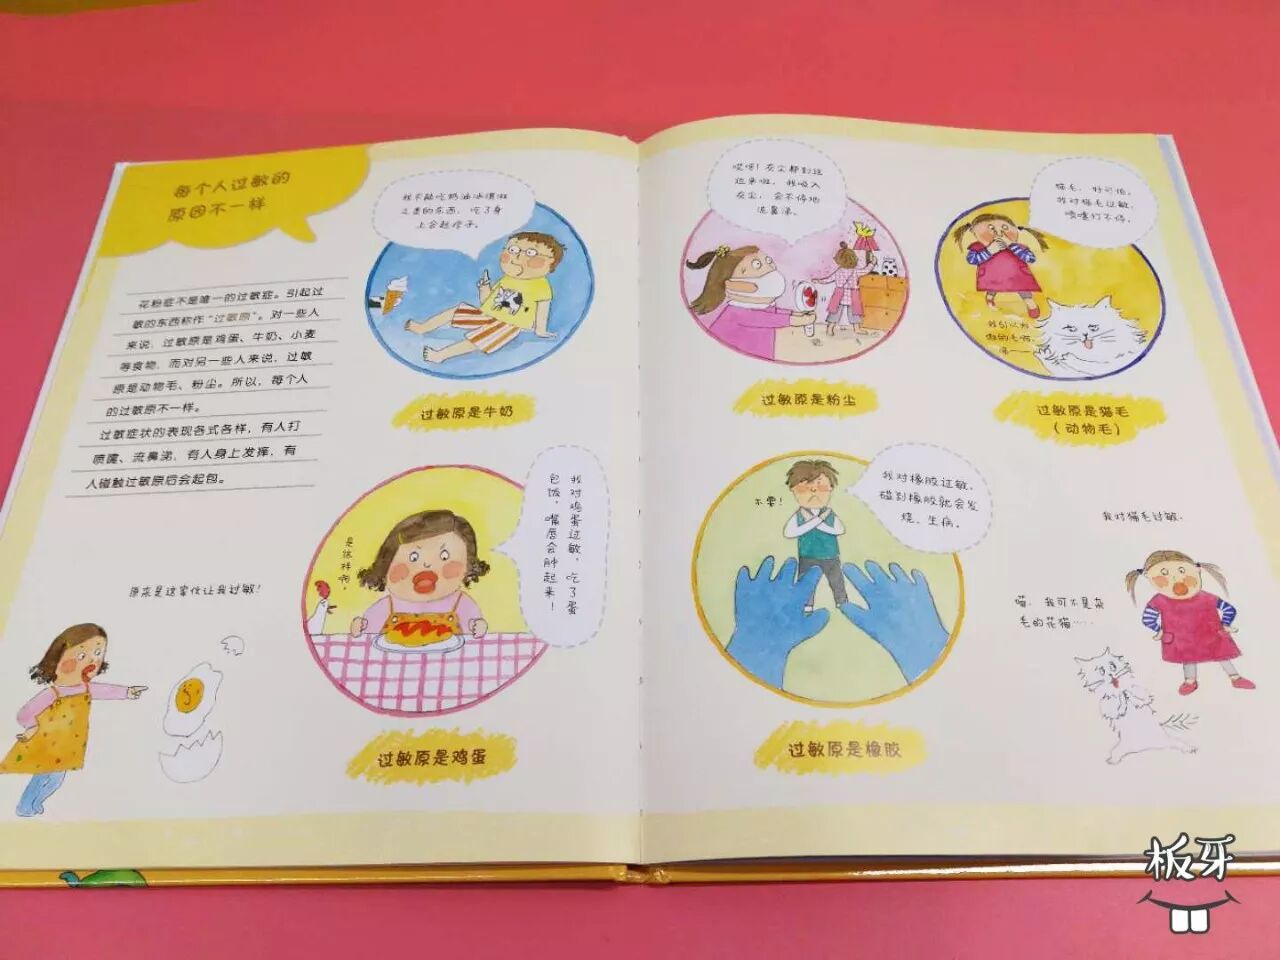 每个人过敏的
原因不一样
花粉症不是唯一的过敏症。引起过
敏的东西称作“过敏原”。对一些人
来说，过敏原是鸡蛋、牛奶、小麦
等食物，而对另一些人来说，过敏
原是动物毛、粉尘。所以，每个人
的过敏原不一样。
过敏症状的表现各式各样，有人打
喷嚏、流鼻涕，有人身上发痒，有
人碰触过敏原后会起包。
我不能吃奶油冰淇淋
之类的东西，吃了身
上会起疹子。
过敏原是牛奶
我对鸡蛋过敏，吃了蛋
包饭，嘴唇会肿起来！
是这样啊。
过敏原是鸡蛋
原来是这家伙让我过敏！
哎呀！灰尘都到这
边来啦，我吸入
灰尘，会不停地
流鼻涕。
过敏原是粉尘
猫毛，好可怕。
我对猫毛过敏，
喷嚏打不停。
我引以为
傲的毛啊，
过敏原是猫毛
（动物毛）
我对橡胶过敏，
碰到橡胶就会发
烧、生病。
不要！
过敏原是橡胶
我对猫毛过敏。
喵，我可不是杂
毛的花猫……
板牙